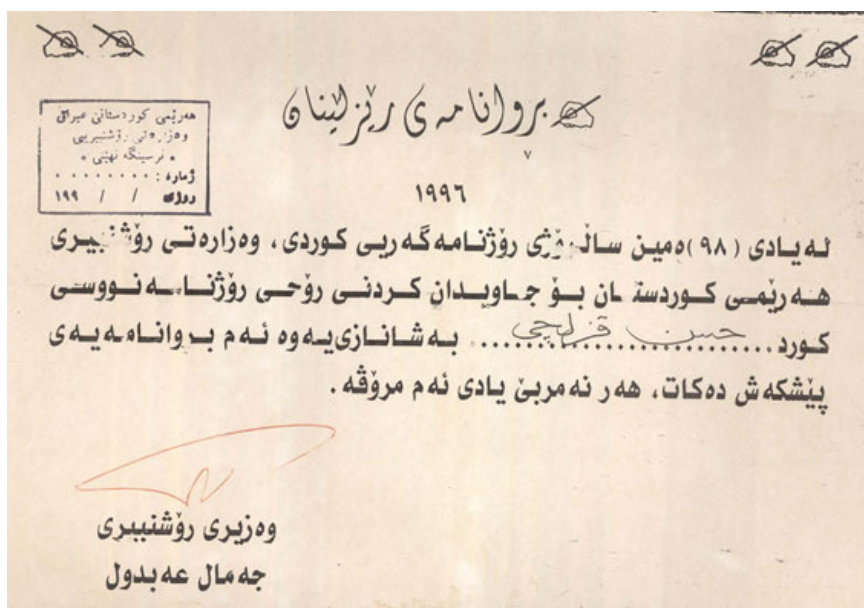 بروانامەی رێزلێنان
هەرێمی کوردستانی عیراق
وەزارەتی رۆشنبیریی
ژمارە : ٠٠٠٠٠٠٠٠
رۆژی / / ١٩٩
١٩٩٦
لەیادی (٩٨)ەمین ساڵڕۆژی رۆژنامەگەریی کوردی، وەزارەتی رۆشنبیری
هەرێمی کوردستان بۆ جاویدان کردنی رۆحی رۆژنامەنووسی
کورد....حسن قزلجی.... بەشانازی‌یەوە ئەم بروانامەیەی
پێشکەش دەکات، هەر نەمربێ یادی ئەم مرۆڤە.
وەزیری رۆشنبیری
جەمال عەبدول